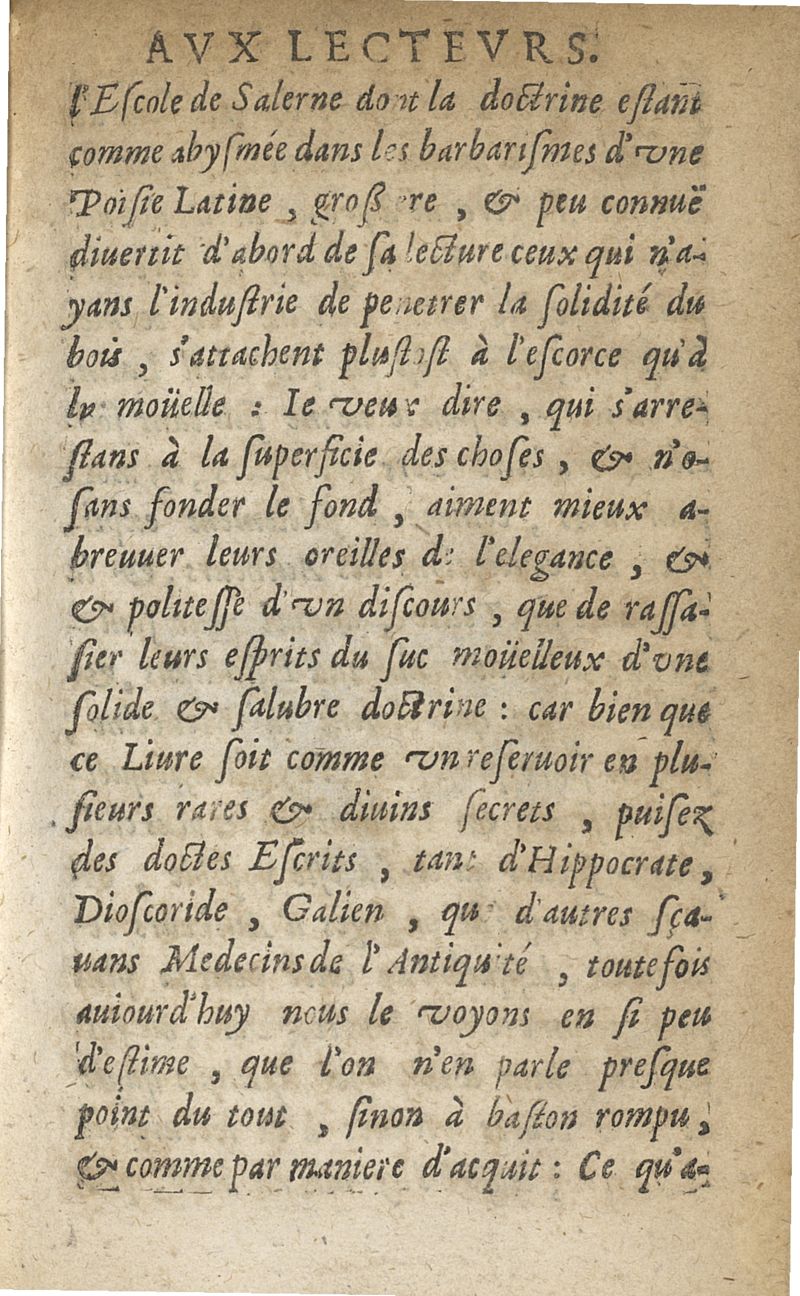 AVX LECTEVRS.
l'Eſcole de Salerne dont la doctrine eſtant
comme abyſmée dans les barbariſmes d'vne
Poiſie Latine, groſſiere, & peu connuë
diuertit d'abord de ſa lecture ceux qui n'a-
yans l'induſtrie de penetrer la ſolidité du
bois, s'attachent pluſtoſt à l'eſcorce qu'à
la moüelle : Ie veux dire, qui s'arre-
ſtans à la ſuperficie des choſes, & n'o-
ſans fonder le fond, aiment mieux a-
breuuer leurs oreilles de l'elegance, &
& politeſſe d'vn diſcours, que de raſſa-
ſier leurs eſprits du ſuc moüelleux d'vne
ſolide & ſalubre doctrine : car bien que
ce Liure ſoit comme vn reſeruoir en plu-
ſieurs rares & diuins ſecrets, puiſez
des doctes Eſcrits, tant d'Hippocrate,
Dioſcoride, Galien, que d'autres ſça-
uans Medecins de l'Antiquité, toutefois
auiourd'huy nous le voyons en ſi peu
d'eſtime, que l'on n'en parle preſque
point du tout, ſinon à baſton rompu,
& comme par maniere d'acquit : Ce qu'a-